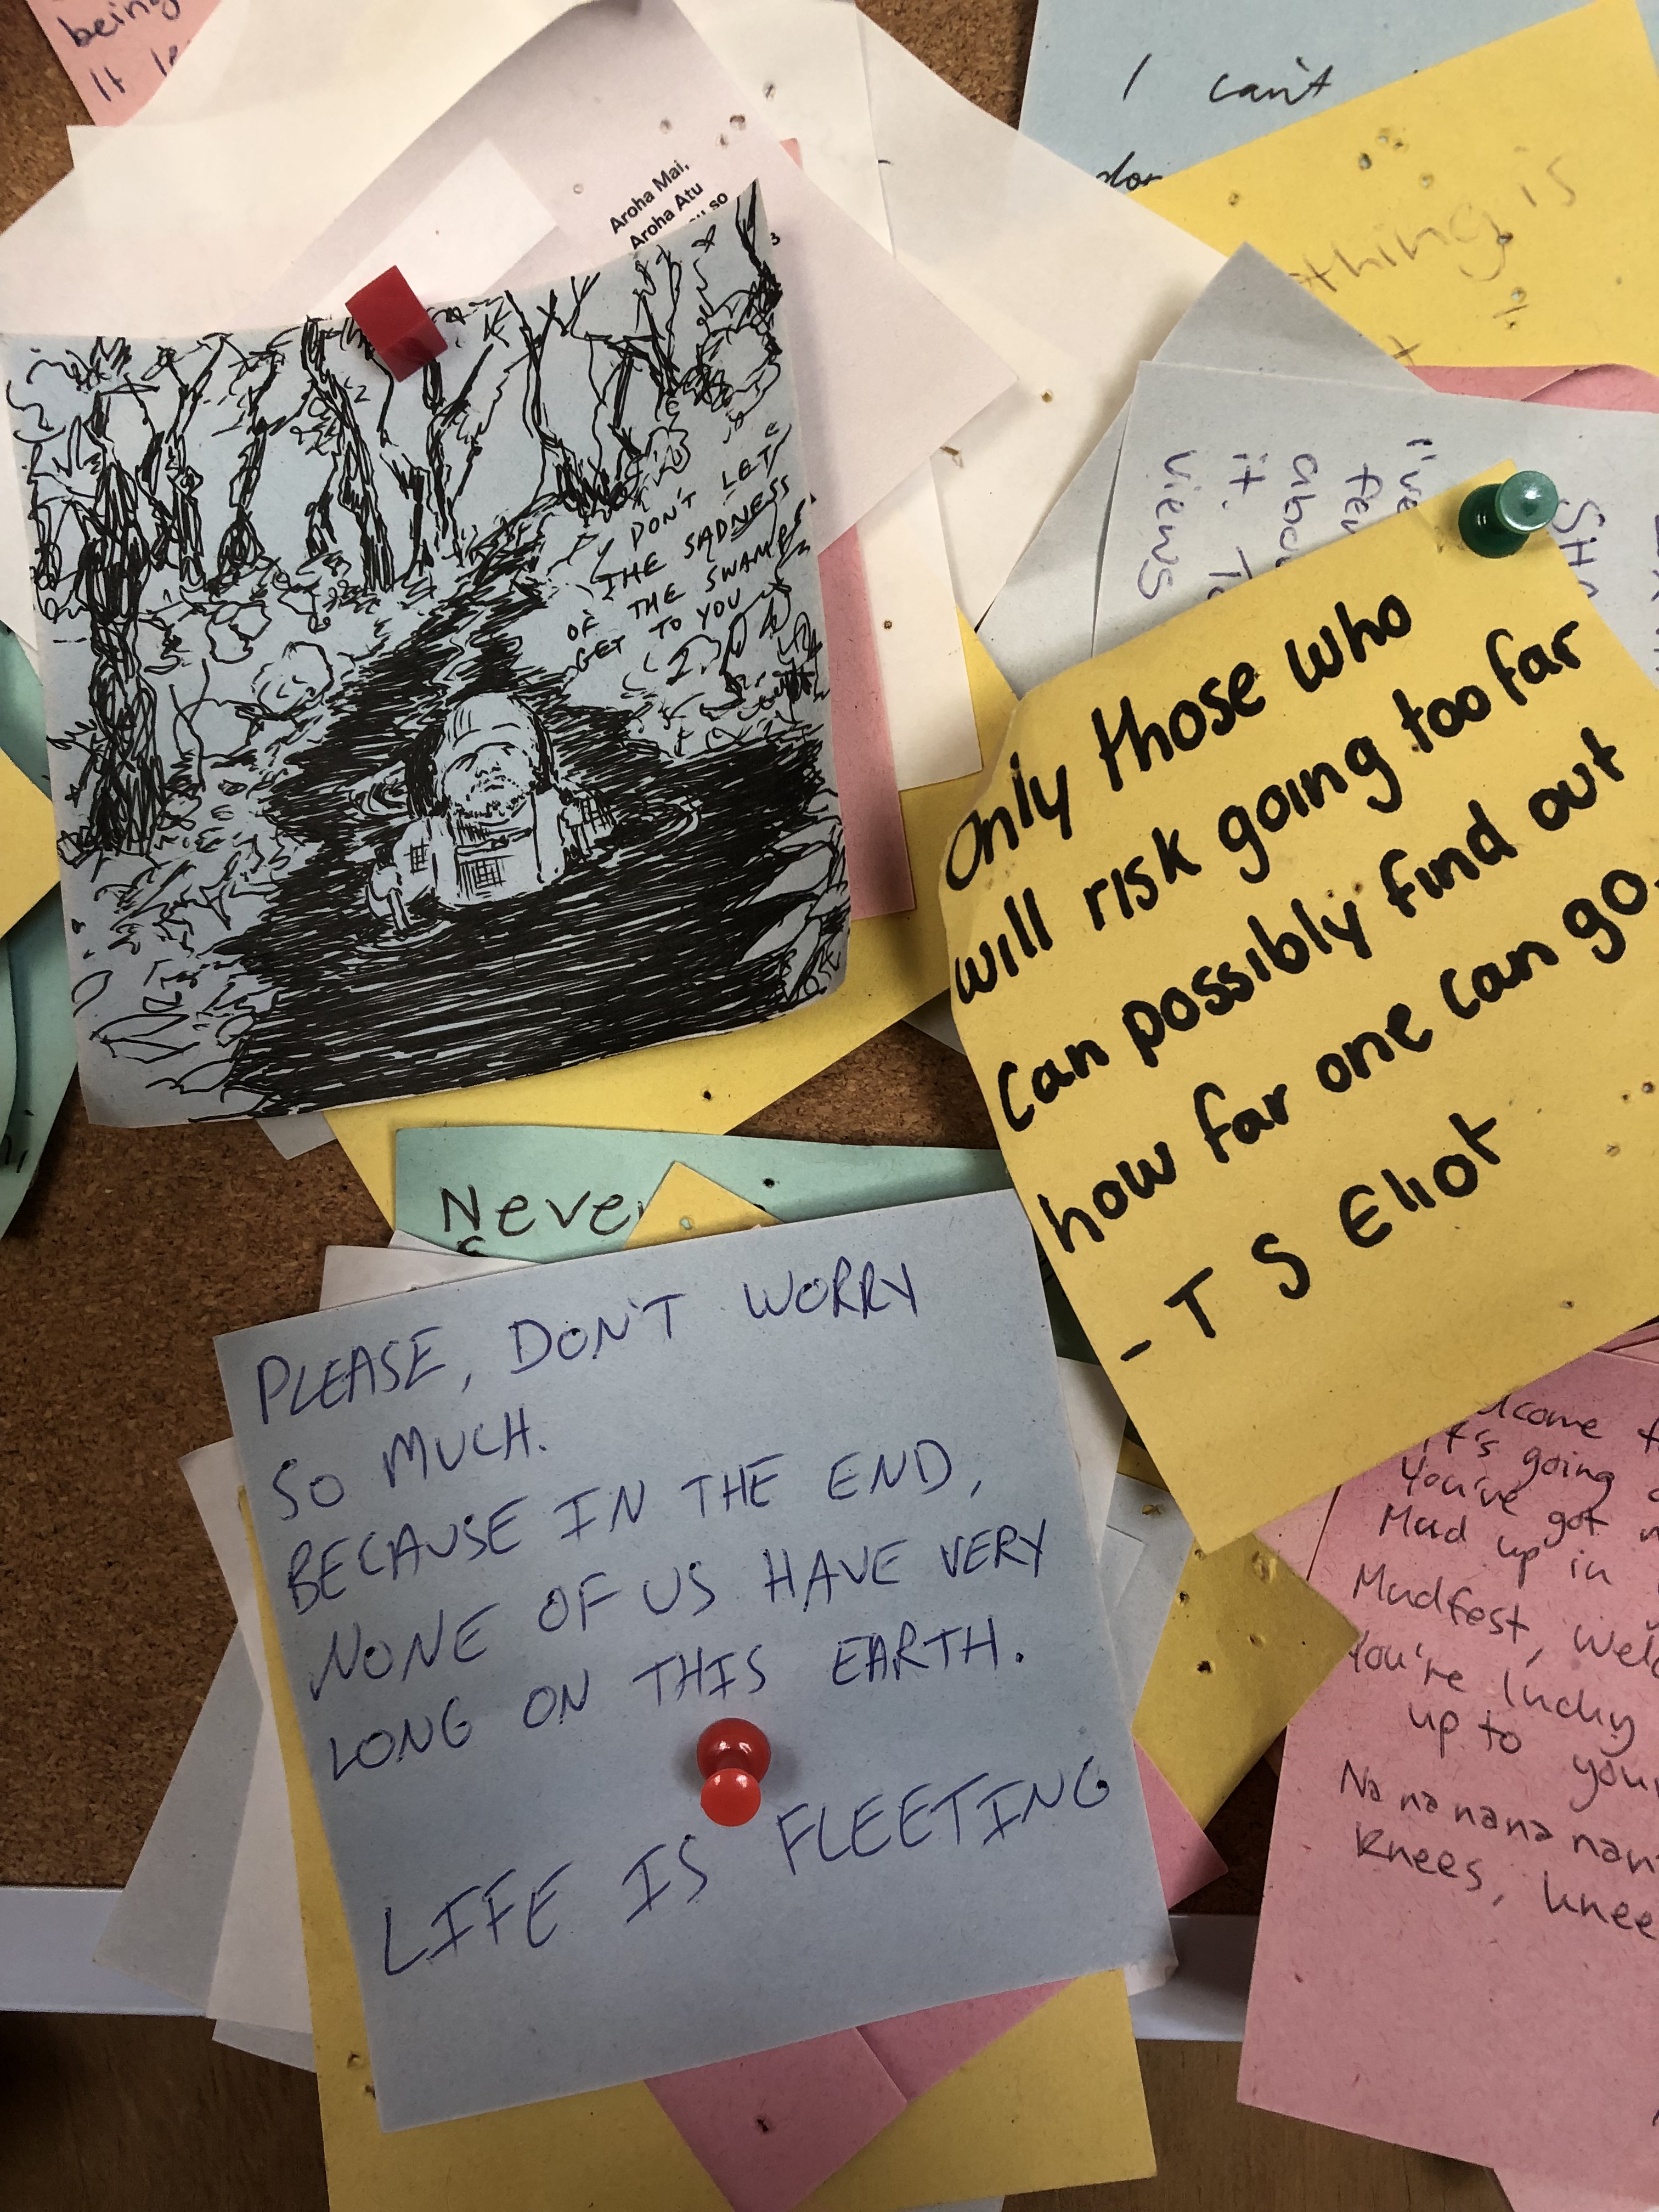 being
It
I can't
Aroha Mai,
Aroha Atu
so
3
thing is
DON'T LET
THE SADNESS
OF THE SWAMPS
GET TO YOU
I've
few
it. To
views
Only those who
will risk going too far
Can possibly find out
how far one can go.
- T S Eliot
Neve
PLEASE, DON'T WORRY
SO MUCH.
BECAUSE IN THE END,
NONE OF US HAVE VERY
LONG ON THIS EARTH.
LIFE IS FLEETING
It's going
You've got
Mud up in
Mudfest, Welc
You're lucky
up to your
Na na nana nan
Knees, knee